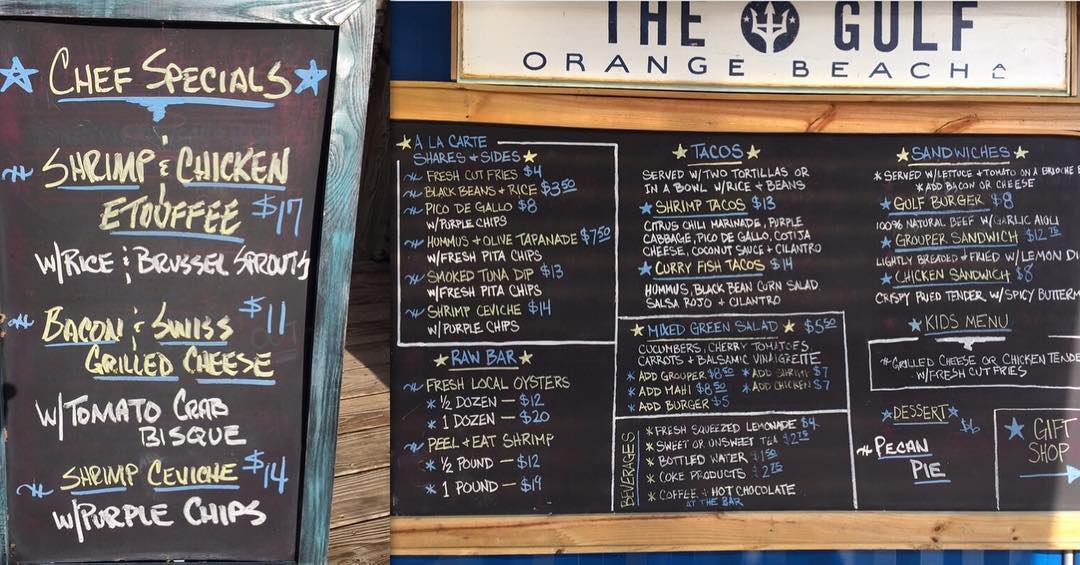 CHEF SPECIALS
SHRIMP & CHICKEN
ETOUFFEE $17
W/RICE & BRUSSEL SPROUTS
BACON & SWISS $11
GRILLED CHEESE
W/TOMATO CRAB
BISQUE
SHRIMP CEVICHE $14
W/PURPLE CHIPS
THE GULF
ORANGE BEACH
A LA CARTE
SHARES + SIDES
FRESH CUT FRIES $4
BLACK BEANS + RICE $3.50
PICO DE GALLO $8
W/PURPLE CHIPS
HUMMUS + OLIVE TAPANADE $7.50
W/FRESH PITA CHIPS
SMOKED TUNA DIP $13
W/FRESH PITA CHIPS
SHRIMP CEVICHE $14
W/PURPLE CHIPS
RAW BAR
FRESH LOCAL OYSTERS
* 1/2 DOZEN — $12
* 1 DOZEN — $20
PEEL + EAT SHRIMP
* 1/2 POUND — $12
* 1 POUND — $19
TACOS
SERVED W/TWO TORTILLAS OR
IN A BOWL W/RICE + BEANS
SHRIMP TACOS $13
CITRUS CHILI MARINADE, PURPLE
CABBAGE, PICO DE GALLO, COTIJA
CHEESE, COCONUT SAUCE + CILANTRO
CURRY FISH TACOS $14
HUMMUS, BLACK BEAN CORN SALAD
SALSA ROJO + CILANTRO
MIXED GREEN SALAD $5.50
CUCUMBERS, CHERRY TOMATOES,
CARROTS + BALSAMIC VINAIGRETTE
* ADD GROUPER $8.50 * ADD SHRIMP $7
* ADD MAHI $8.50 * ADD CHICKEN $7
* ADD BURGER $5
BEVERAGES
* FRESH SQUEEZED LEMONADE $4
* SWEET OR UNSWEET TEA $2.75
* BOTTLED WATER $1.50
* COKE PRODUCTS $2.75
* COFFEE + HOT CHOCOLATE
AT THE BAR
SANDWICHES
* SERVED W/LETTUCE + TOMATO ON A BRIOCHE
* ADD BACON OR CHEESE
GULF BURGER $8
100% NATURAL BEEF W/GARLIC AIOLI
GROUPER SANDWICH $12.75
LIGHTLY BREADED + FRIED W/LEMON
CHICKEN SANDWICH $8
CRISPY FRIED TENDER W/SPICY
KIDS MENU
GRILLED CHEESE OR CHICKEN TENDE
W/FRESH CUT FRIES
DESSERT
$6
PECAN
PIE
GIFT
SHOP